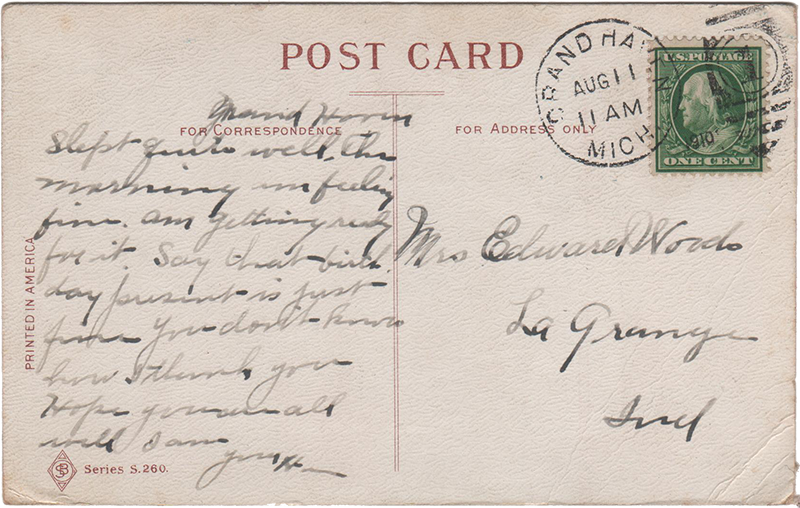 POST CARD
GRAND HAVEN
AUG 11
11 AM
1910
MICH.
U.S. POSTAGE
ONE CENT
FOR CORRESPONDENCE
FOR ADDRESS ONLY
Grand Haven
Slept quite well, this
morning im feeling
fine. am getting ready
for it. Say that birth
day present is just
fine you don't know
how I thank you
Hope you are all
well I am
your
Mrs Edward Woods
La Grange
Ind
PRINTED IN AMERICA
SB
Series S.260.